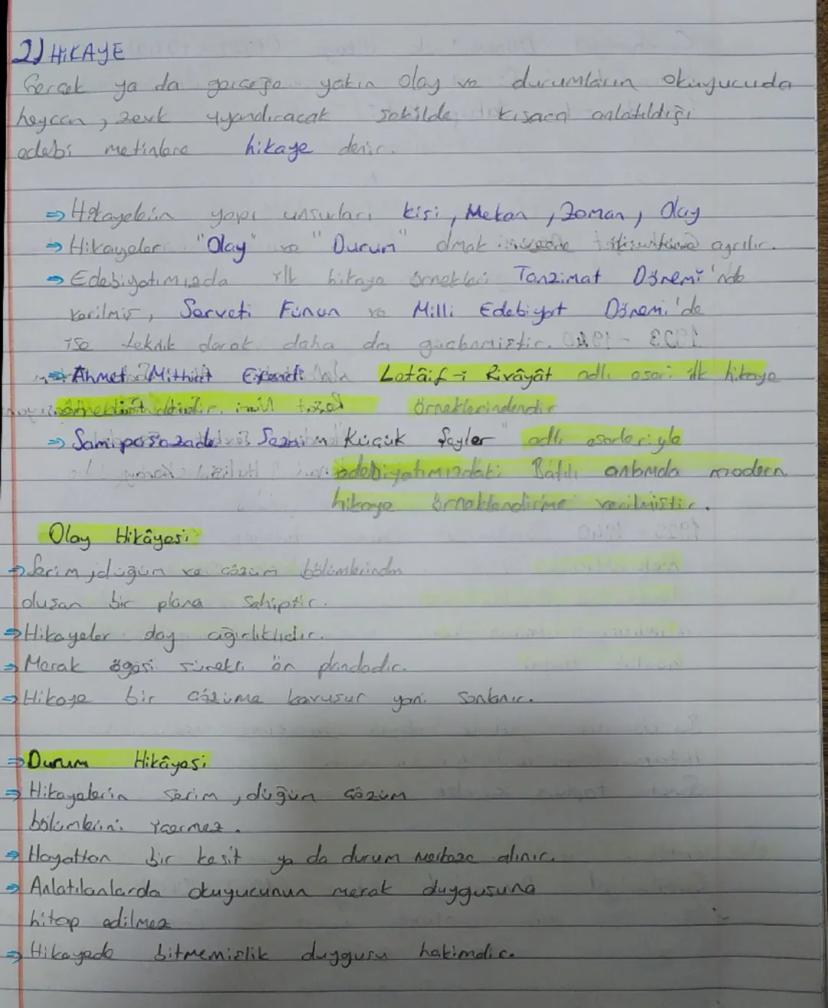 2) HİKAYE
Gerçek ya da gerçeğe yakın olay ve durumların okuyucuda
heycan, zevk uyandıracak şekilde kısaca anlatıldığı
edebi metinlere hikaye denir.
⇒ Hikayelerin yapı unsurları kişi, Mekan, Zaman, Olay
⇒ Hikayeler "Olay" ve "Durum" olmak üzere ayrılır.
⇒ Edebiyatımızda ilk hikaye örnekleri Tanzimat Dönemi'nde
verilmiş, Serveti Fünun ve Milli Edebiyat Dönemi'de
ise teknik olarak daha da güçlenmiştir.
⇒ Ahmet Mithat Efendi Letâif-i Rivâyât adlı eseri ilk hikaye
örneklerindendir
⇒ Samipaşazade Sezai Küçük Şeyler" adlı eserleriyle
edebiyatımızdaki Batılı anlamda modern
hikaye örneklendirme verilmiştir.
Olay Hikâyesi
⇒ Serim, düğün ve çözüm bölümlerinden
oluşan bir plana sahiptir.
⇒ Hikayeler olay ağırlıklıdır.
⇒ Merak ögesi sürekli ön plandadır.
⇒ Hikaye bir çözüme kavuşur yani sonlanır.
⇒ Durum Hikâyesi
⇒ Hikayelerin serim, düğün çözüm
bölümlerini içermez.
⇒ Hayattan bir kesit ya da durum merkeze alınır.
⇒ Anlatılanlarda okuyucunun merak duygusuna
hitap edilmez
⇒ Hikayede bitmemişlik duygusu hakimdir.